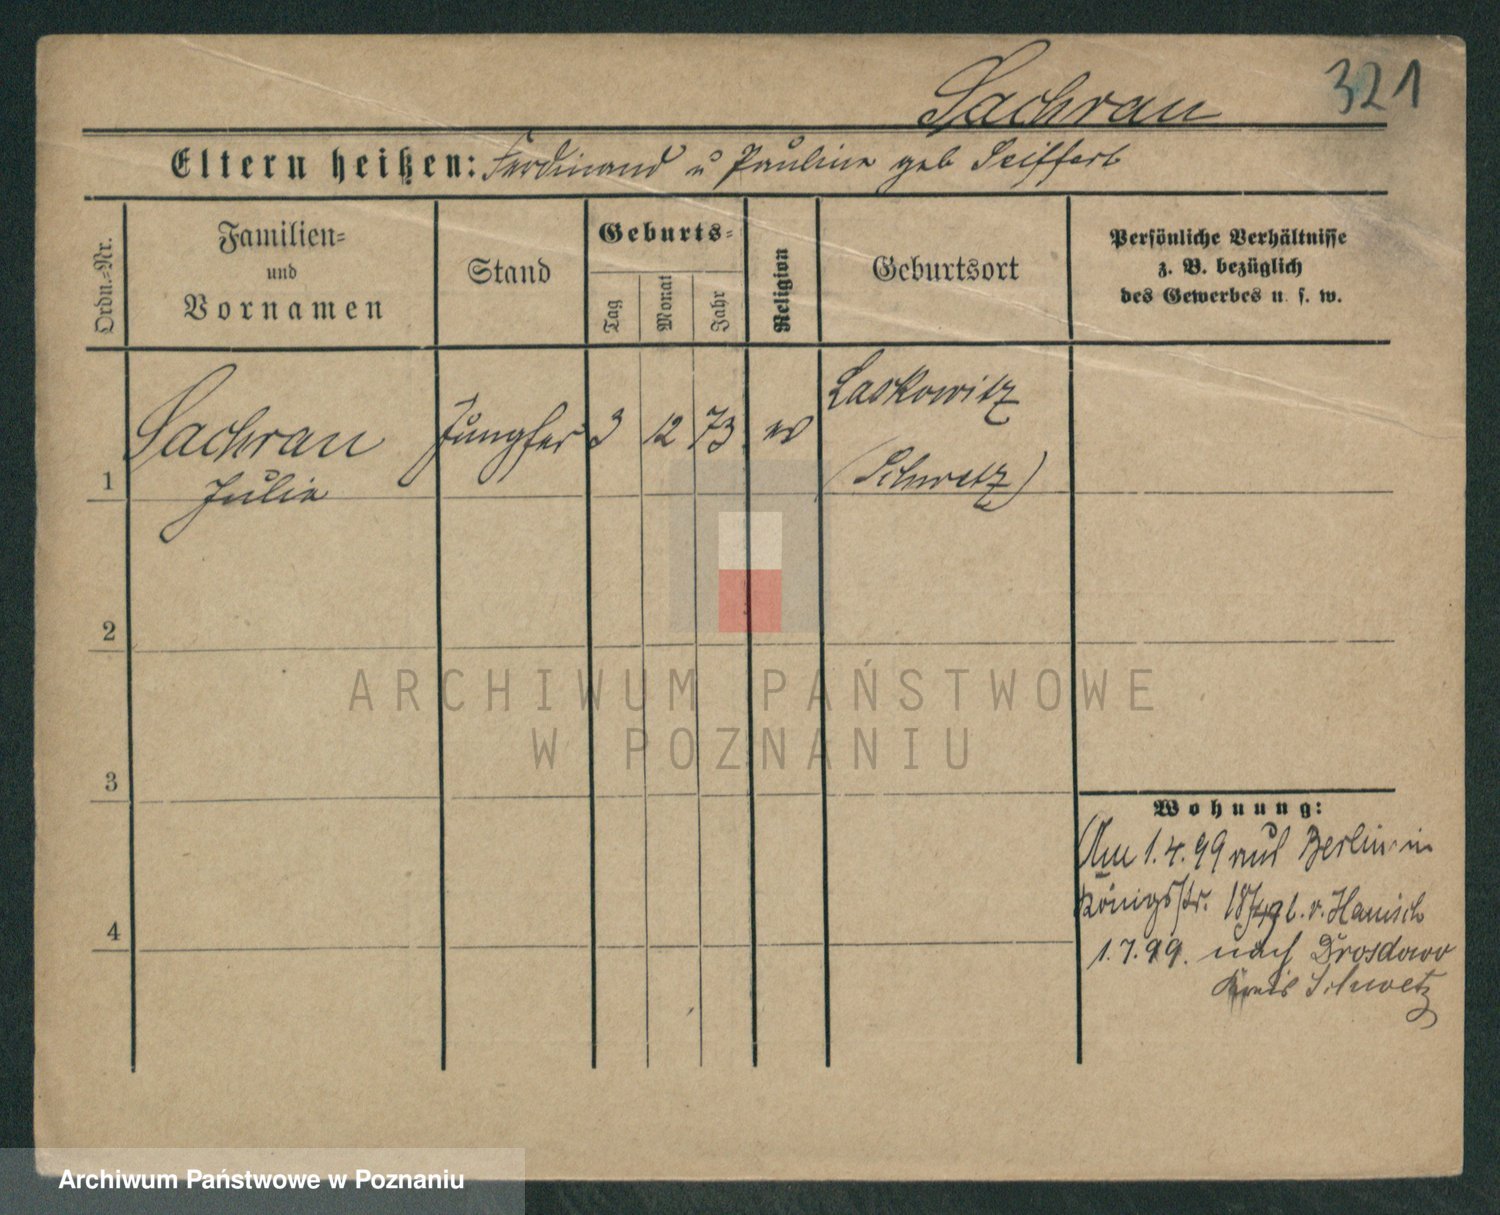 321
Sachrau
Eltern heißen: Ferdinand u Pauline geb Seiffert
Ordn.=Nr.
Familien=
und
Vornamen
Stand
Geburts=
Tag
Monat
Jahr
Religion
Geburtsort
Persönliche Verhältnisse
z. B. bezüglich
des Gewerbes u. s. w.
1
Sachrau
Julie
Jungfer
3
12
73
ev
Laskowitz
(Schwetz)
2
3
4
Wohnung:
Am 1.4.99 aus Berlin in
Königsstr. 18/ b. v. Hanisch
1.7.99. nach Drosdowo
Kreis Schwetz
ARCHIWUM PAŃSTWOWE
W POZNANIU
Archiwum Państwowe w Poznaniu